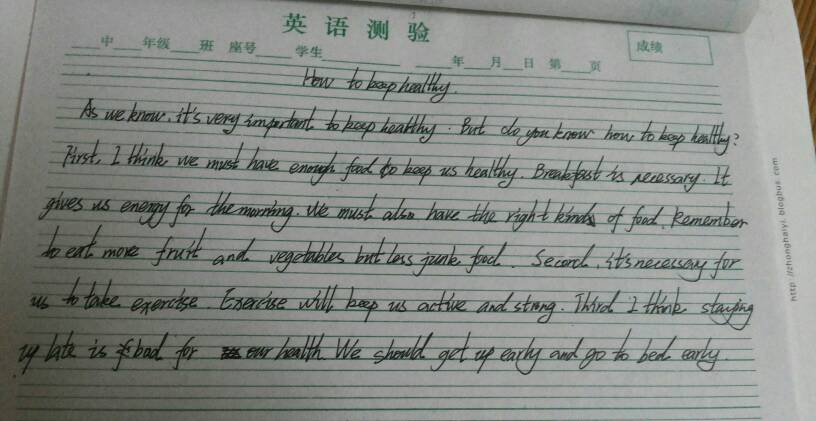 英语测验
中 年级 班 座号 学生 年 月 日 第 页
成绩
How to keep healthy.
As we know, it's very important to keep healthy. But do you know how to keep healthy?
First, I think we must have enough food to keep us healthy. Breakfast is necessary. It
gives us energy for the morning. We must also have the right kinds of food. Remember
to eat more fruit and vegetables but less junk food. Second, it's necessary for
us to take exercise. Exercise will keep us active and strong. Third I think staying
up late is bad for our health. We should get up early and go to bed early.
http://zhonghaiyi.blogbus.com